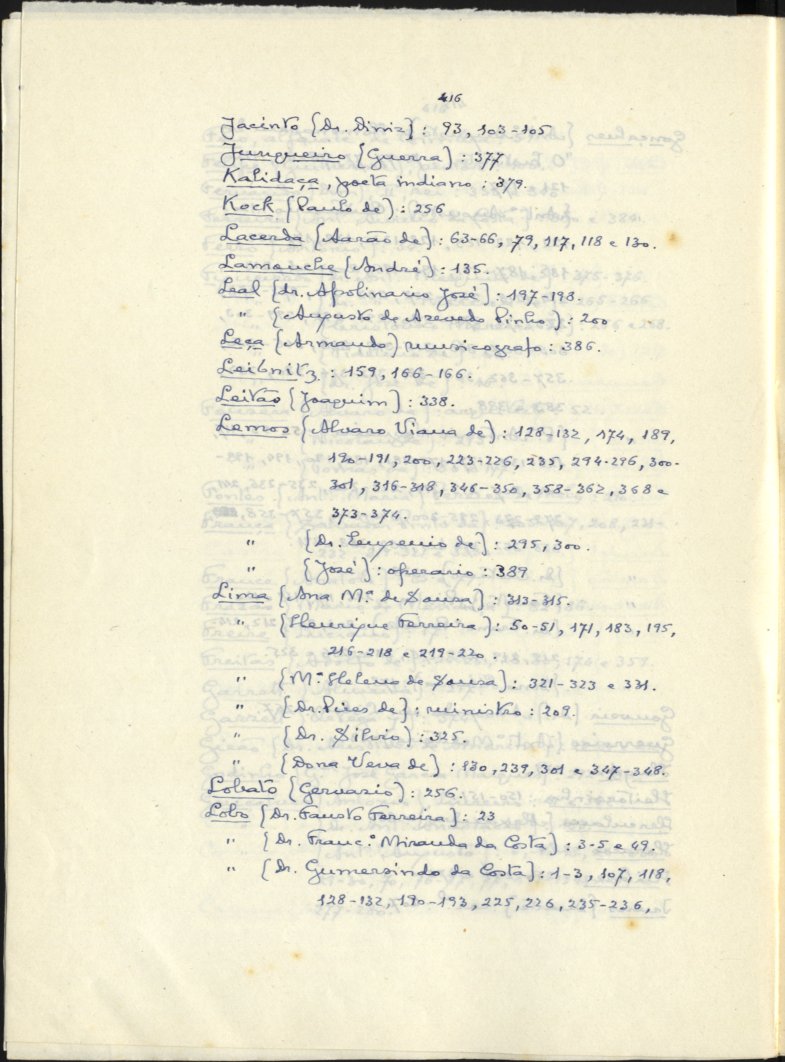 416
Jacinto (Dr. Diniz) : 93, 103-105
Junqueiro (Guerra) : 377
Kalidaça, poeta indiano : 379.
Kock (Paulo de) : 256
Lacerda (Aarão de) : 63-66, 79, 117, 118 e 130.
Lamouche (André) : 135.
Leal (dr. Apolinario José) : 197-198
" (Augusto de Azevedo Pinho) : 200
Leça (Armando) musicografo : 386.
Leibnitz : 159, 166-166.
Leitão (Joaquim) : 338.
Lemos (Alvaro Viana de) : 128-132, 174, 189,
190-191, 200, 223-226, 235, 294-296, 300-
301, 316-318, 346-350, 358-362, 368 e
373-374.
" (Dr. Eugenio de) : 295, 300.
" (José) : operario : 389
Lima (Ana M.ª de Sousa) : 313-315.
" (Henrique Ferreira) : 50-51, 171, 183, 195,
216-218 e 219-220.
" (M.ª Helena de Sousa) : 321-323 e 331.
" (Dr. Pires de) : ministro : 209.
" (Dr. Silvio) : 325.
" (Dona Veva de) : 830, 239, 301 e 347-348.
Lobato (Gervasio) : 256.
Lobo (Dr. Fausto Ferreira) : 23
" (Dr. Franc.º Miranda da Costa) : 3-5 e 49.
" (Dr. Gumersindo da Costa) : 1-3, 107, 118,
128-132, 190-193, 225, 226, 235-236,